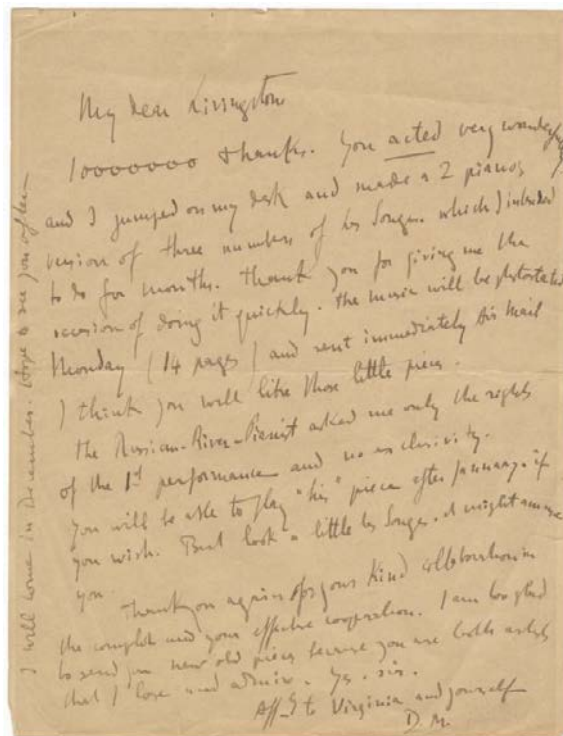 My dear Livingston
10000000 thanks. You acted very wonderfully
and I jumped on my desk and made a 2 pianos
version of three numbers of les Songes. which I intended
to do for months. Thank you for giving me the
occasion of doing it quickly. the music will be photostated
Monday (14 pages) and sent immediately Air Mail
I think you will like those little pieces.
the Russian-River-Pianist asked me only the rights
of the 1st performance and no exclusivity.
You will be able to play "his" piece after January. if
you wish. But look a little les Songes. it might amuse
you.
Thank you again for your kind collaboration in
the complot and your effective cooperation. I am too glad
to send you new old pieces because you are both artists
that I love and admire. Yes. sir.
Aff to Virginia and yourself
D. M.
I will come in December. Hope to see you often